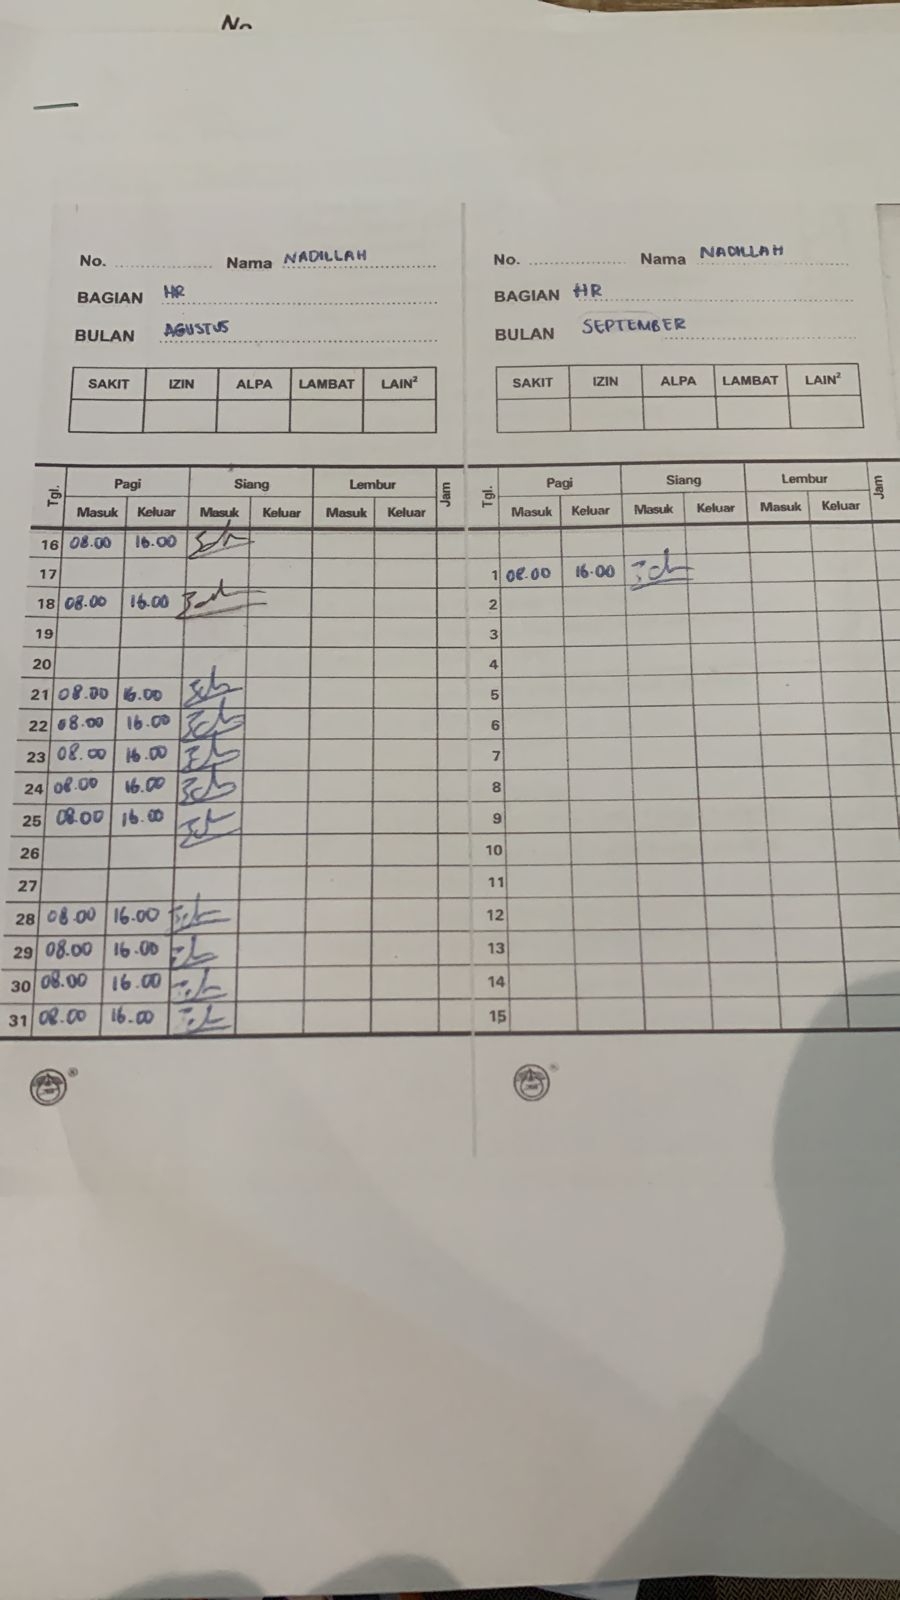 No
No. Nama NADILLAH
BAGIAN HR
BULAN AGUSTUS
SAKIT IZIN ALPA LAMBAT LAIN²
Tgl. Pagi Siang Lembur Jam
Masuk Keluar Masuk Keluar Masuk Keluar
16 08.00 16.00
17
18 08.00 16.00
19
20
21 08.00 16.00
22 08.00 16.00
23 08.00 16.00
24 08.00 16.00
25 08.00 16.00
26
27
28 08.00 16.00
29 08.00 16.00
30 08.00 16.00
31 08.00 16.00
®
No. Nama NADILLAH
BAGIAN HR
BULAN SEPTEMBER
SAKIT IZIN ALPA LAMBAT LAIN²
Tgl. Pagi Siang Lembur Jam
Masuk Keluar Masuk Keluar Masuk Keluar
1 08.00 16.00
2
3
4
5
6
7
8
9
10
11
12
13
14
15
®